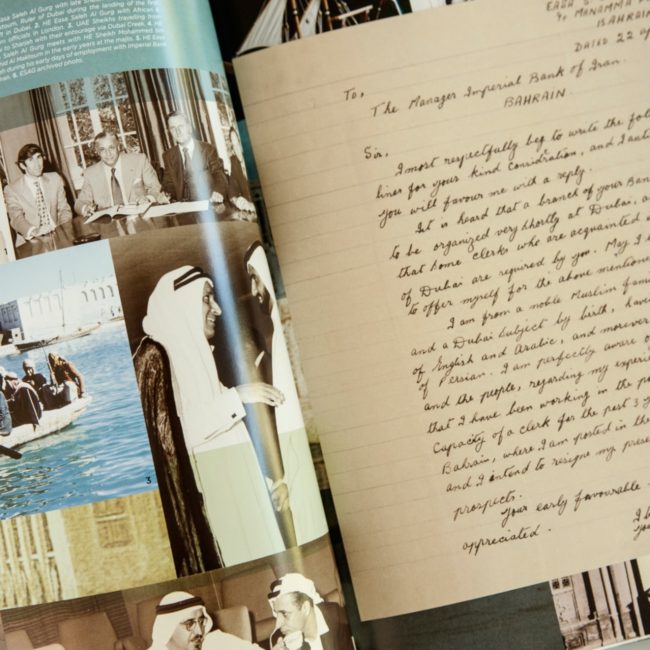 Easa Saleh Al Gurg with late
Ruler of Dubai during the landing of the first
in Dubai. 2. HE Easa Saleh Al Gurg with African &
officials in London. 3. UAE Sheikhs traveling from
to Sharjah with their entourage via Dubai Creek. 4. HE
Saleh Al Gurg meets with HE Sheikh Mohammed bin
Al Maktoum in the early years at the majlis. 5. HE Easa
during his early days of employment with Imperial Bank
Iran. 6. ESAG archived photo.
3
EASA
% MANAMA
BAHRAIN
DATED 22
To,
The Manager Imperial Bank of Iran.
BAHRAIN.
Sir,
I most respectfully beg to write the
lines for your kind considration, and I
you will favour me with a reply.
It is heard that a branch of your Ban
to be organized very shortly at Dubai, a
that some clerks who are acquainted
of Dubai are required by you. May I
to offer myself for the above mentione
I am from a noble Muslim fam
and a Dubai subject by birth, hav
of English and Arabic, and moreover
of Persian. I am perfectly aware o
and the people, regarding my experi
that I have been working in the po
Capacity of a clerk for the past 3 y
Bahrain, where I am posted in the
and I intend to resigne my prese
prospects.
Your early favourable
appreciated.
I b
You